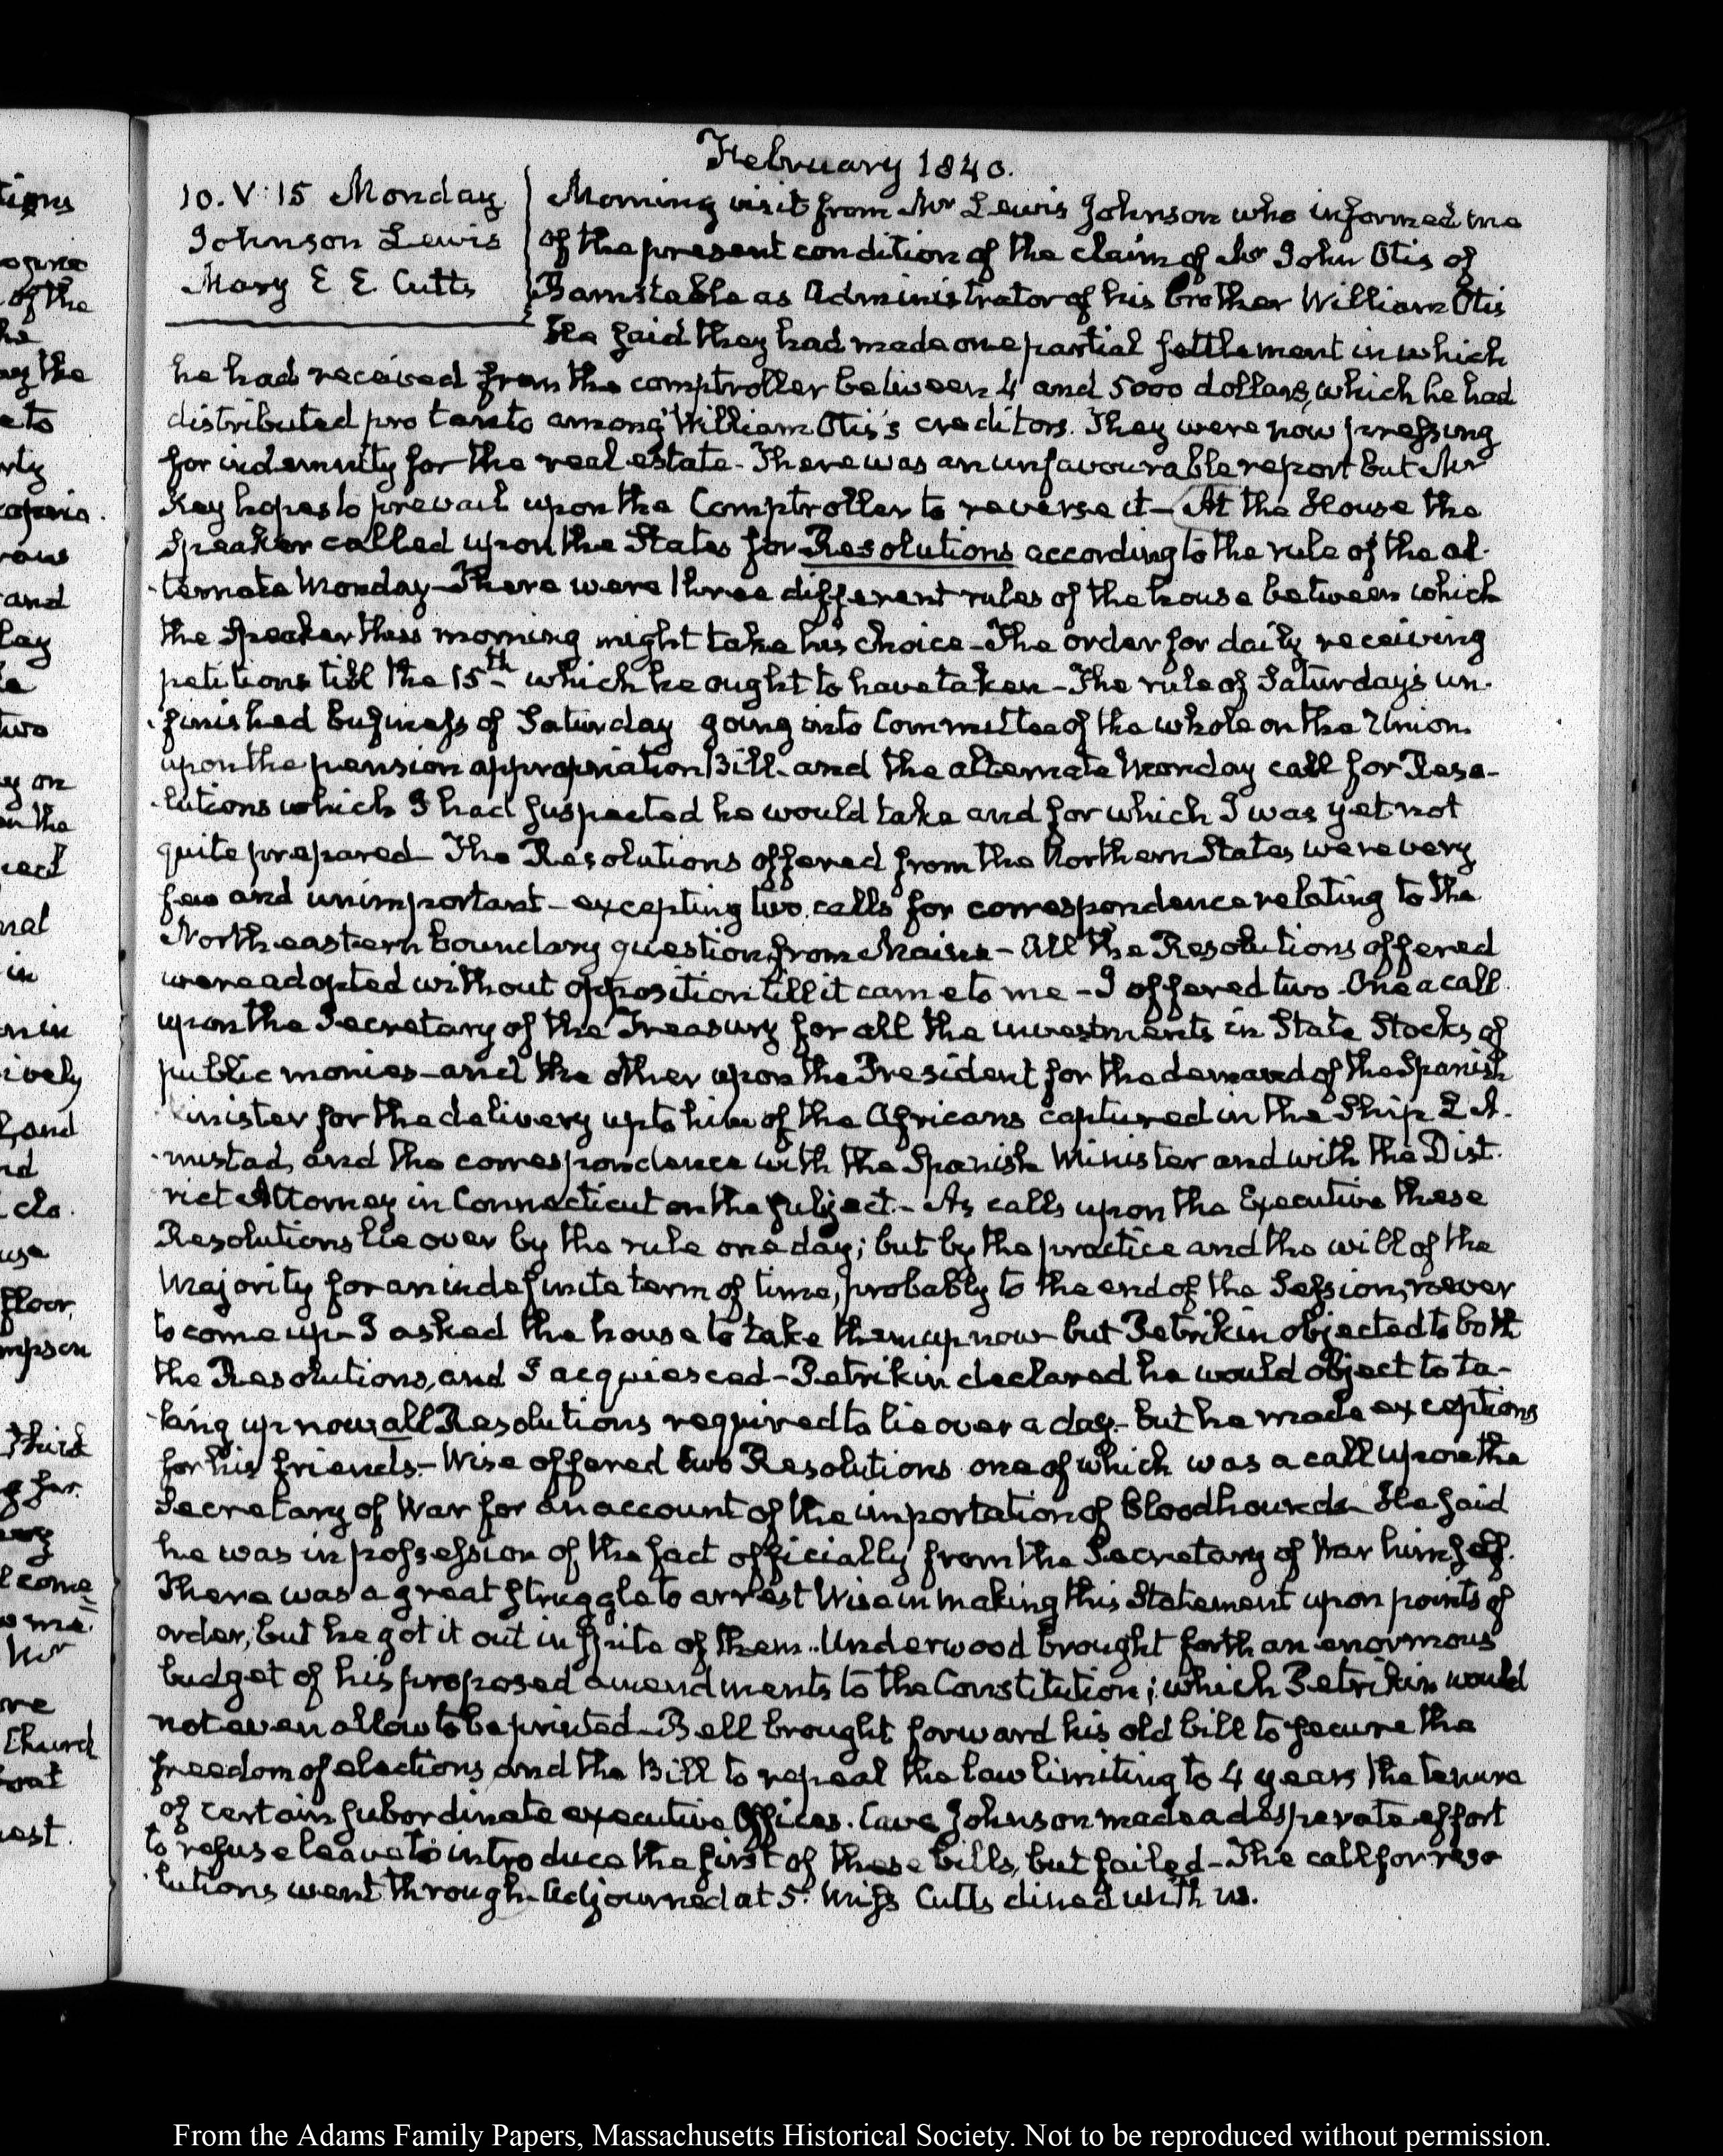 February 1840.
10. V: 15 Monday.
Johnson Lewis
Mary E E Cutts
Morning visit from Mr Lewis Johnson who informed me
of the present condition of the claim of Mr John Otis of
Barnstable as Administrator of his brother William Otis
He said they had made one partial settlement in which
he had received from the comptroller between 4 and 5000 dollars, which he had
distributed pro tanto among William Otis's creditors. They were now pressing
for indemnity for the real estate. There was an unfavourable report but Mr
Key hopes to prevail upon the Comptroller to reverse it — At the House the
Speaker called upon the States for Resolutions according to the rule of the al-
-ternate Monday — There were three different rules of the house between which
the Speaker this morning might take his choice — The order for daily receiving
petitions till the 15th which he ought to have taken — The rule of Saturday's un-
-finished business of Saturday going into Committee of the whole on the Union.
upon the pension appropriation Bill — and the alternate Monday call for Reso-
-lutions which I had suspected he would take and for which I was yet not
quite prepared — The Resolutions offered from the Northern States were very
few and unimportant — excepting two calls for correspondence relating to the
North eastern boundary question, from Maine — All the Resolutions offered
were adopted without opposition till it came to me — I offered two — One a call
upon the Secretary of the Treasury for all the investments in State Stocks of
public monies — and the other upon the President for the demand of the Spanish
Minister for the delivery up to him of the Africans captured in the Ship L'A-
-mistad, and the correspondence with the Spanish Minister and with the Dist-
rict Attorney in Connecticut on the subject. — As calls upon the Executive these
Resolutions lie over by the rule one day; but by the practice and the will of the
Majority for an indefinite term of time, probably to the end of the Session, never
to come up — I asked the house to take them up now but Petrikin objected to both
the Resolutions, and I acquiesced — Petrikin declared he would object to ta-
-king up now all Resolutions required to lie over a day — but he made exceptions
for his friends. — Wise offered two Resolutions one of which was a call upon the
Secretary of War for an account of the importation of Bloodhounds — He said
he was in possession of the fact officially from the Secretary of War himself.
There was a great struggle to arrest Wise in making this Statement upon points of
order, but he got it out in spite of them. Underwood brought forth an enormous
budget of his proposed amendments to the Constitution; which Petrikin would
not even allow to be printed — Bell brought forward his old bill to secure the
freedom of elections, and the Bill to repeal the law limiting to 4 years the tenure
of certain subordinate executive Offices. Cave Johnson made a desperate effort
to refuse leave to introduce the first of these bills, but failed — The call for reso
-lutions went through — Adjourned at 5. Miss Cutts dined with us.
tions
of the
he
the
two
on the
nal
in
ively
and
floor
third
Church
From the Adams Family Papers, Massachusetts Historical Society. Not to be reproduced without permission.